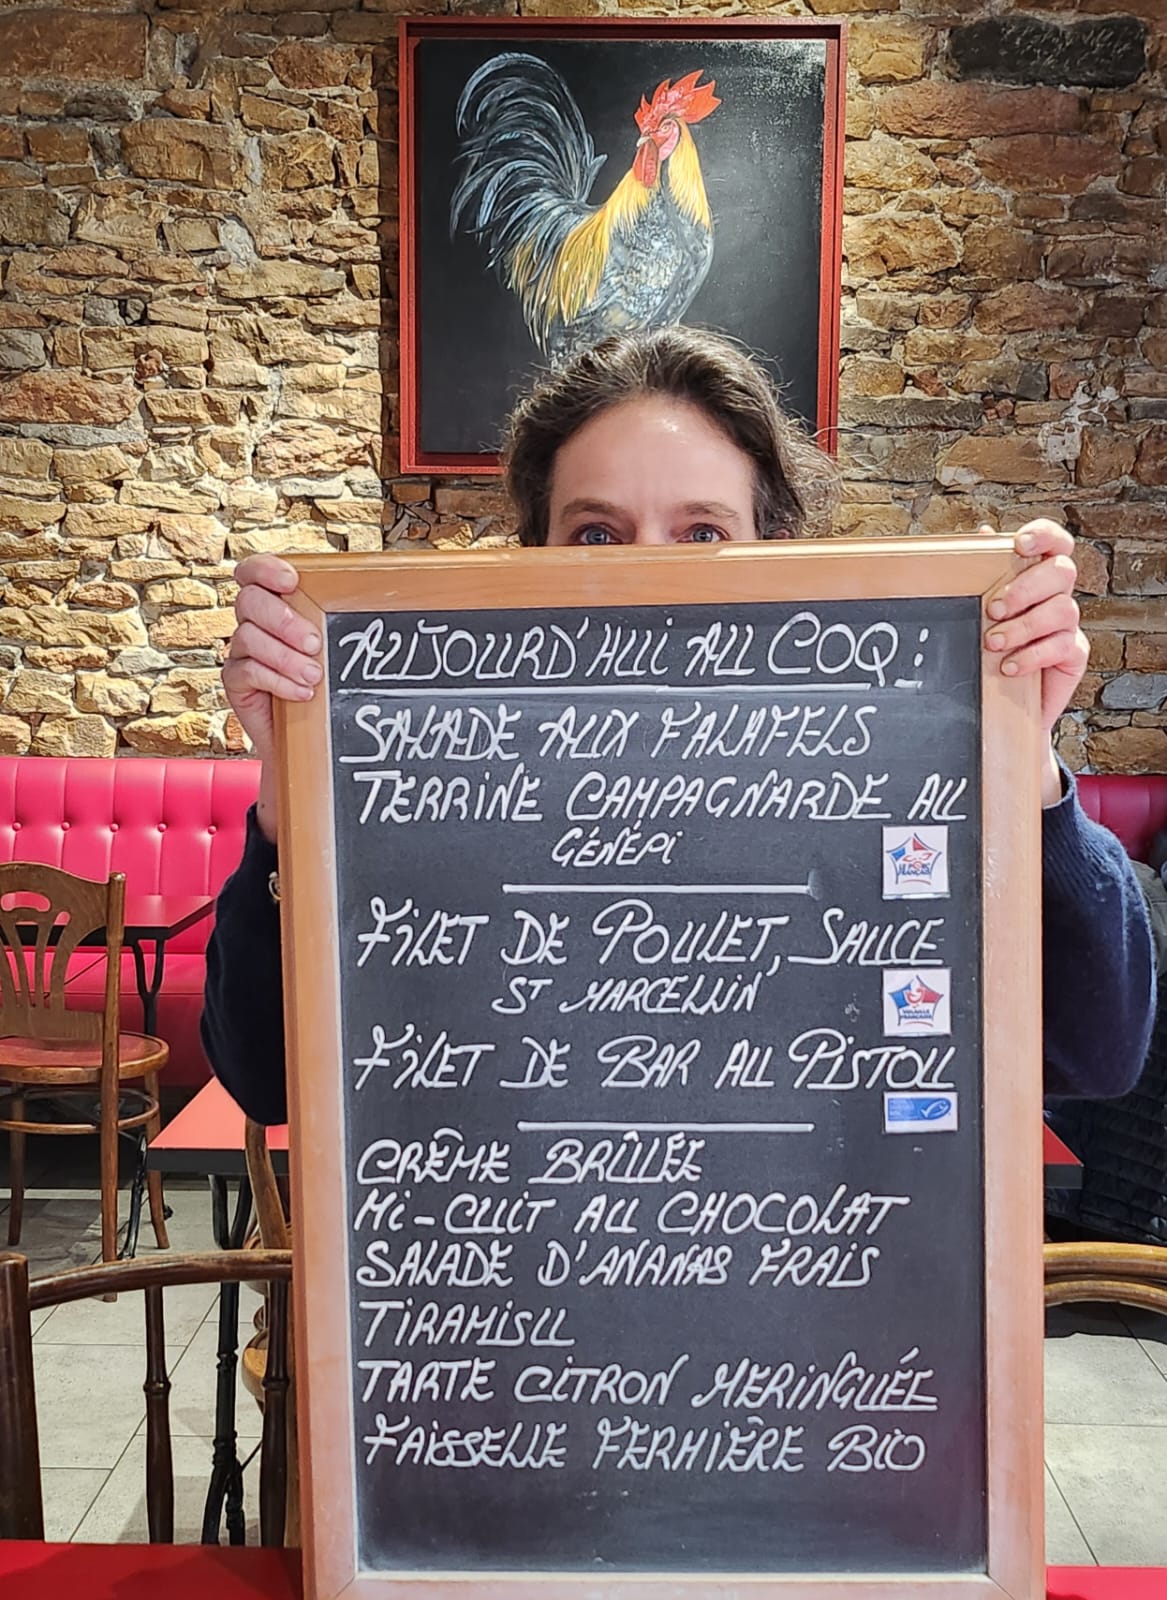 AUJOURD'HUI AU COQ :
SALADE AUX FALAFELS
TERRINE CAMPAGNARDE AU
GÉNÉPI
LE PORC
FRANÇAIS
FILET DE POULET, SAUCE
ST MARCELLIN
VOLAILLE
FRANÇAISE
FILET DE BAR AU PISTOU
CRÊME BRÛLÉE
MI-CUIT AU CHOCOLAT
SALADE D'ANANAS FRAIS
TIRAMISU
TARTE CITRON MERINGUÉE
FAISSELLE FERMIÈRE BIO